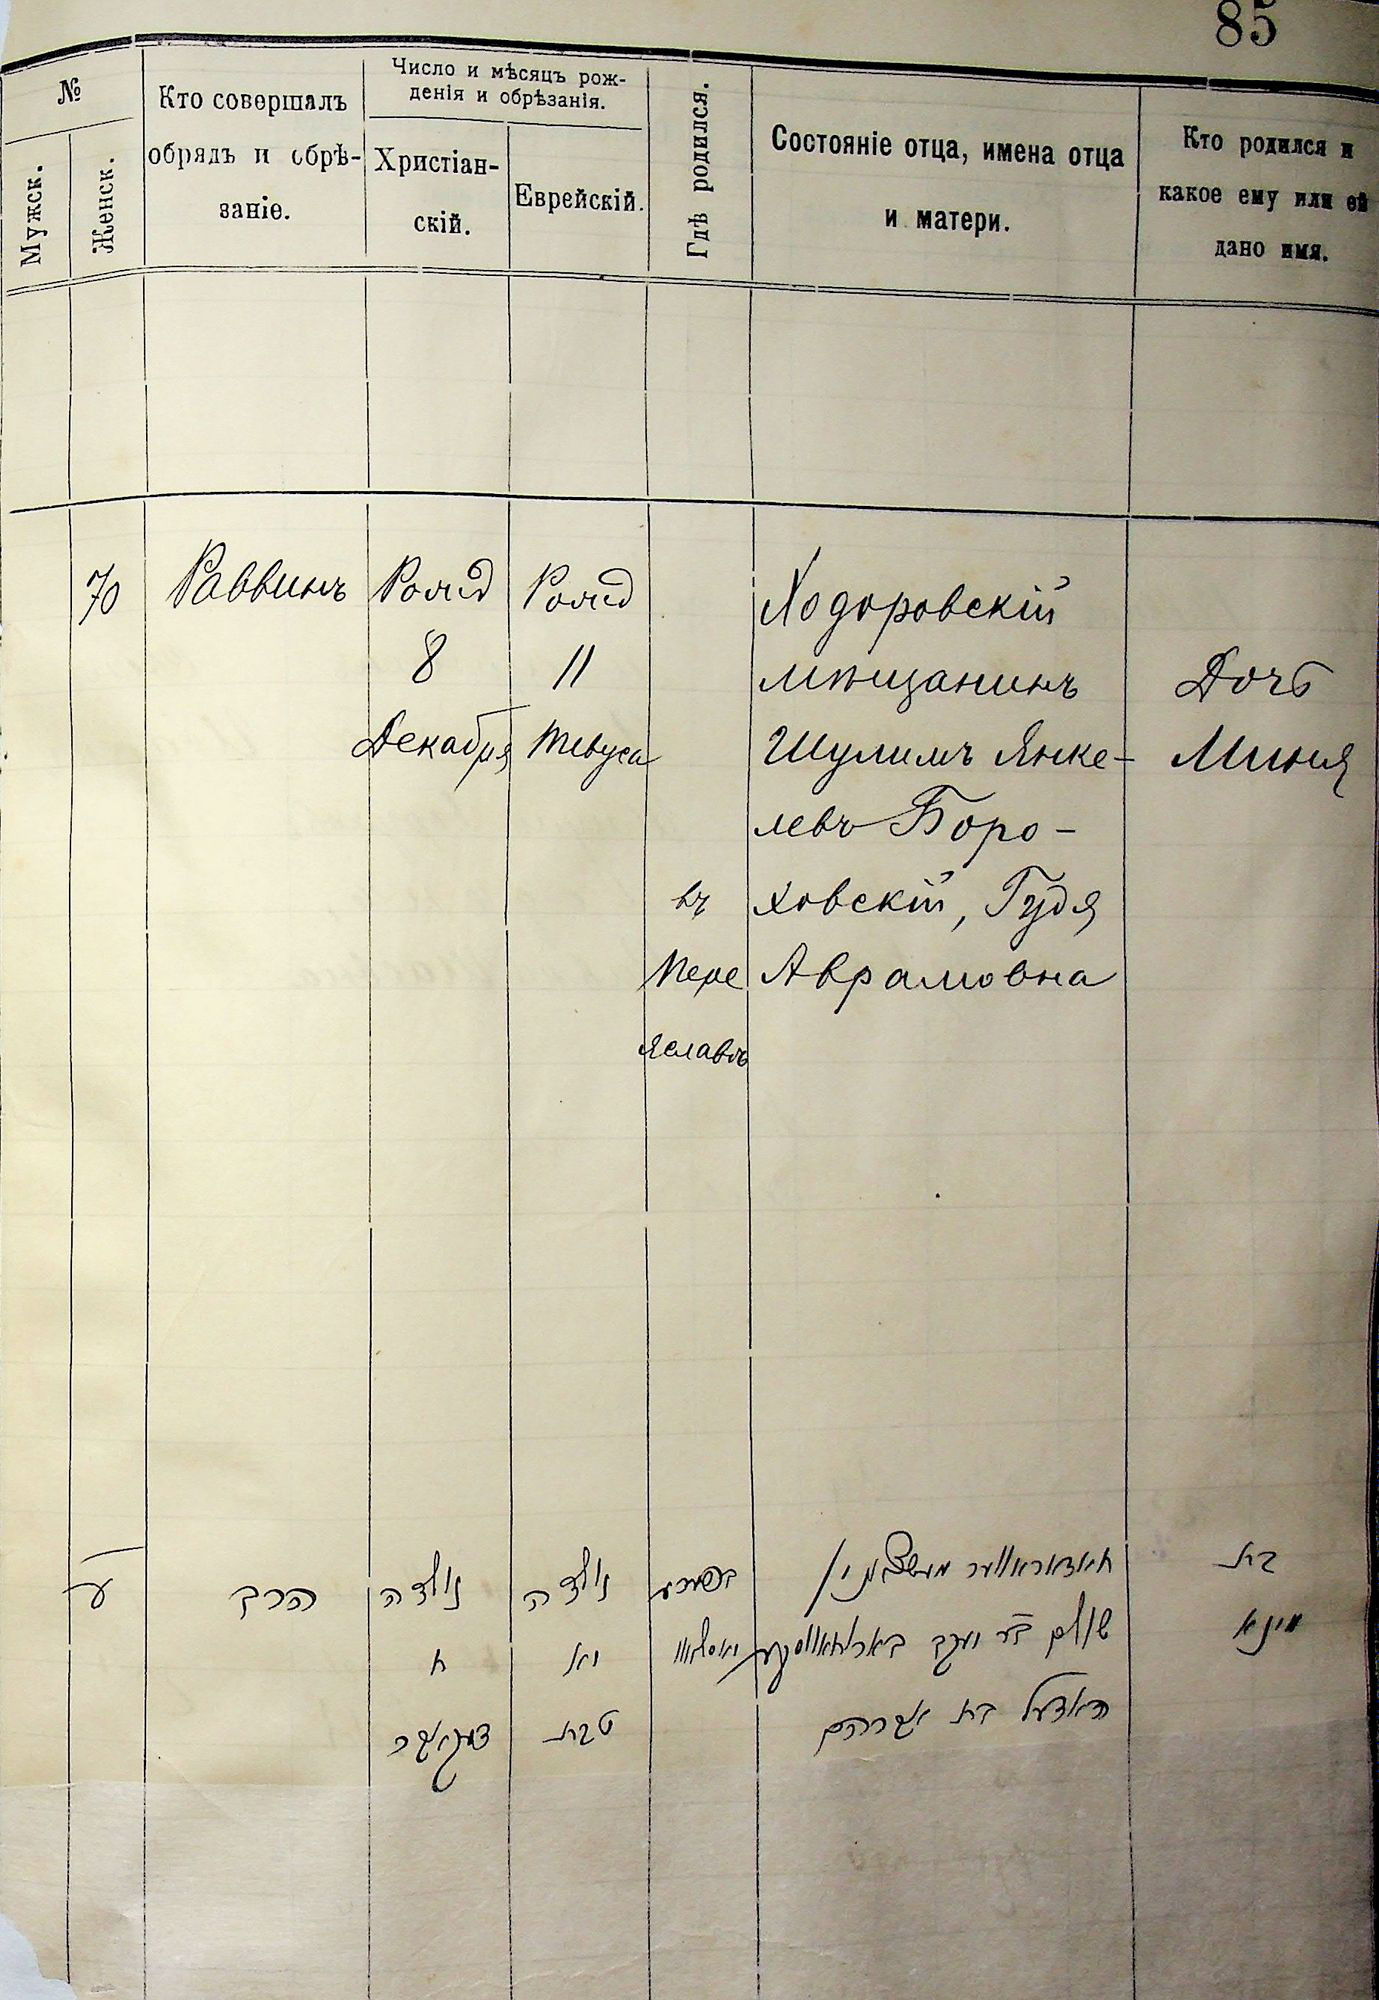 85
№
Мужск.
Женск.
Кто совершалъ
обрядъ и обрѣ-
заніе.
Число и мѣсяцъ рож-
денія и обрѣзанія.
Христіан-
скій.
Еврейскій.
Гдѣ родился.
Состояніе отца, имена отца
и матери.
Кто родился и
какое ему или ей
дано имя.
70
Раввинъ
Рожд
8
Декабря
Рожд
11
Тевуса
въ
Пере
яславѣ
Ходоровскій
мѣщанинъ
Шулимъ Янке-
левъ Боро-
ховскій, Гудя
Аврамовна
Дочь
Миня
ע
הרב
נולדה
ח
דעקאבר
נולדה
יא
טבת
שולם בר יעקב באראחאווסקע
האדעל בת אברהם
בת
מינא